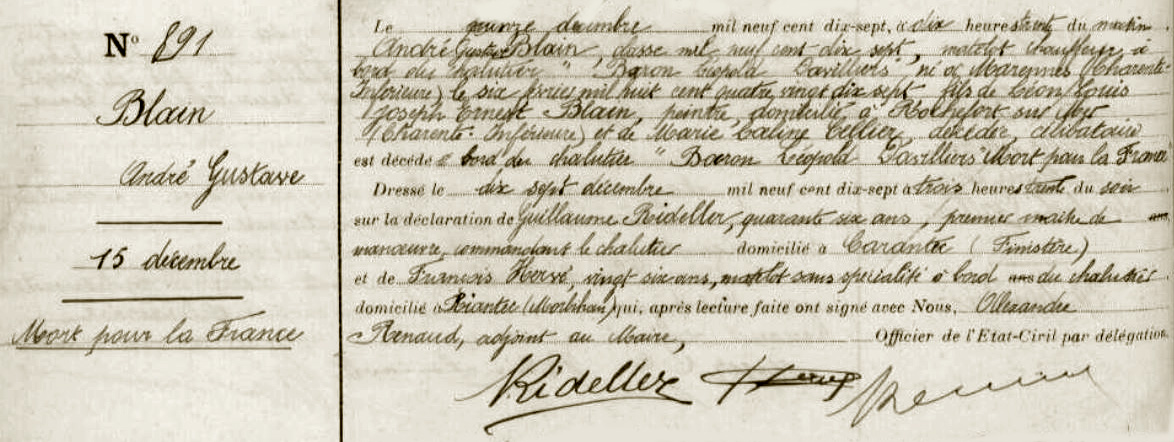 N° 891
Blain
André Gustave
15 décembre
Mort pour la France
Le quinze décembre mil neuf cent dix-sept, à dix heures trente du matin
André Gustave Blain, classe mil neuf cent dix sept, matelot chauffeur à
bord du chalutier "Baron Léopold Davilliers", né à Marennes (Charente-
Inférieure) le six février mil huit cent quatre vingt dix sept fils de Léon Louis
Joseph Ernest Blain, peintre, domicilié à Rochefort sur Mer
(Charente-Inférieure) et de Marie Caline Tellier, décédée, célibataire
est décédé à bord du chalutier "Baron Léopold Davilliers" Mort pour la France
Dressé le dix sept décembre mil neuf cent dix-sept à trois heures trente du soir
sur la déclaration de Guillaume Rideller, quarante six ans, premier maître de ans,
manœuvre, commandant le chalutier domicilié à Carantec (Finistère)
et de François Hervé, vingt six ans, matelot sans spécialité à bord ans du chalutier
domicilié à Riantec (Morbihan) qui, après lecture faite ont signé avec Nous, Alexandre
Renaud, adjoint au Maire, Officier de l'Etat-Civil par délégation.
Rideller Hervé Renaud